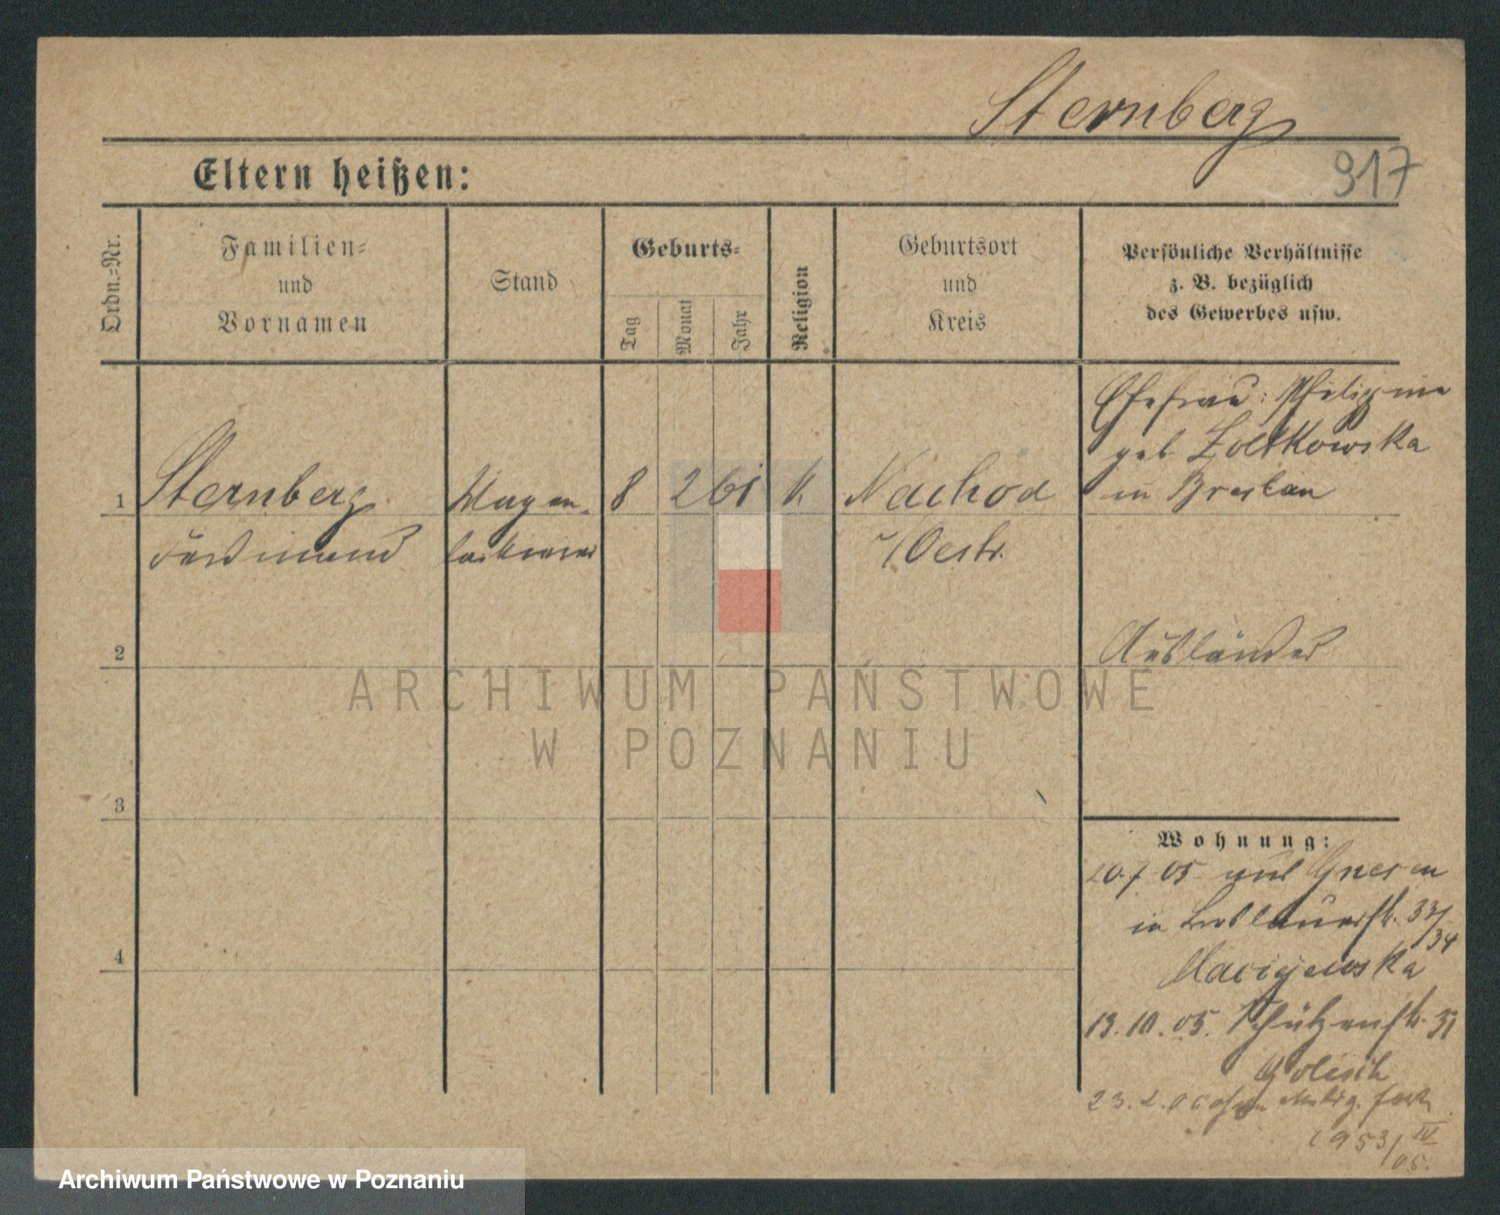 Sternberg
917
Eltern heißen:
Ordn.-Nr.
Familien-
und
Vornamen
Stand
Geburts-
Tag
Monat
Jahr
Religion
Geburtsort
und
Kreis
Persönliche Verhältnisse
z. B. bezüglich
des Gewerbes usw.
Ehefrau: Philippine
geb. Zolkowska
in Breslau
1
Sternberg
Ferdinand
Wagen-
lackierer
8
2
61
k.
Nachod
i/Oestr.
2
Ausländer
ARCHIWUM PAŃSTWOWE
W POZNANIU
3
Wohnung:
20.7 05 aus Gnesen
in 33/
34
4
13.10.05. Schützenstr. 31
Golisch
23.2.06
1953/IV
05.
Archiwum Państwowe w Poznaniu